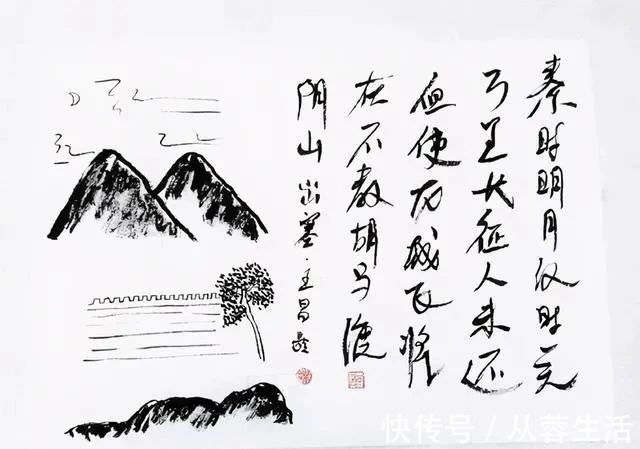 秦时明月汉时关
万里长征人未还
但使龙城飞将
在不教胡马度
阴山 出塞 王昌龄
快传号 / 从蓉生活